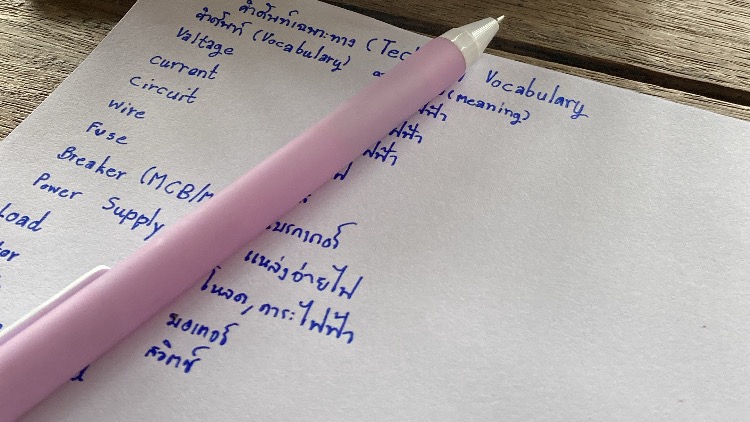 คำศัพท์เฉพาะทาง (Tec Vocabulary
คำศัพท์ (Vocabulary) (meaning)
Valtage
Current
Circuit
Wire
Fuse
Breaker (MCB/M เบรกเกอร์
Power Supply แหล่งจ่ายไฟ
Load โหลด, ภาระไฟฟ้า
tor มอเตอร์
สวิตซ์